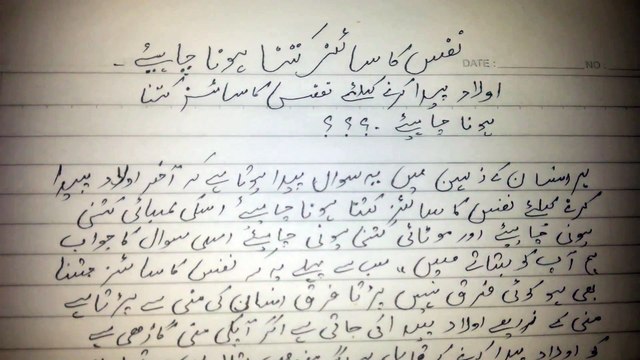 نفس کا سائز کتنا ہونا چاہیئے ۔
DATE: NO
اولاد پیدا کرنے کیلئے نفس کا سائز کتنا
ہونا چاہیئے ۔ ؟؟؟
ہر انسان کے ذہین میں یہ سوال پیدا ہوتا ہے کہ آخر اولاد پیدا
کرنے کیلئے نفس کا سائز کتنا ہونا چاہیے اسکی لمبائی کتنی
ہونی چاہیئے اور موٹائی کتنی ہونی چاہیئے اسی سوال کا جواب
ہم آپ کو بتاتے ہیں ،، سب سے پہلے یہ کہ نفس کا سائز جتنا
بھی ہو کوئی فرق نہیں پڑتا فرق انسان کی منی سے پڑتا ہے
منی کے ذریعے اولاد پیدا کی جاتی ہے اگر آپکی منی گاڑھی ہے
تو اولاد پیدا کرنے کے